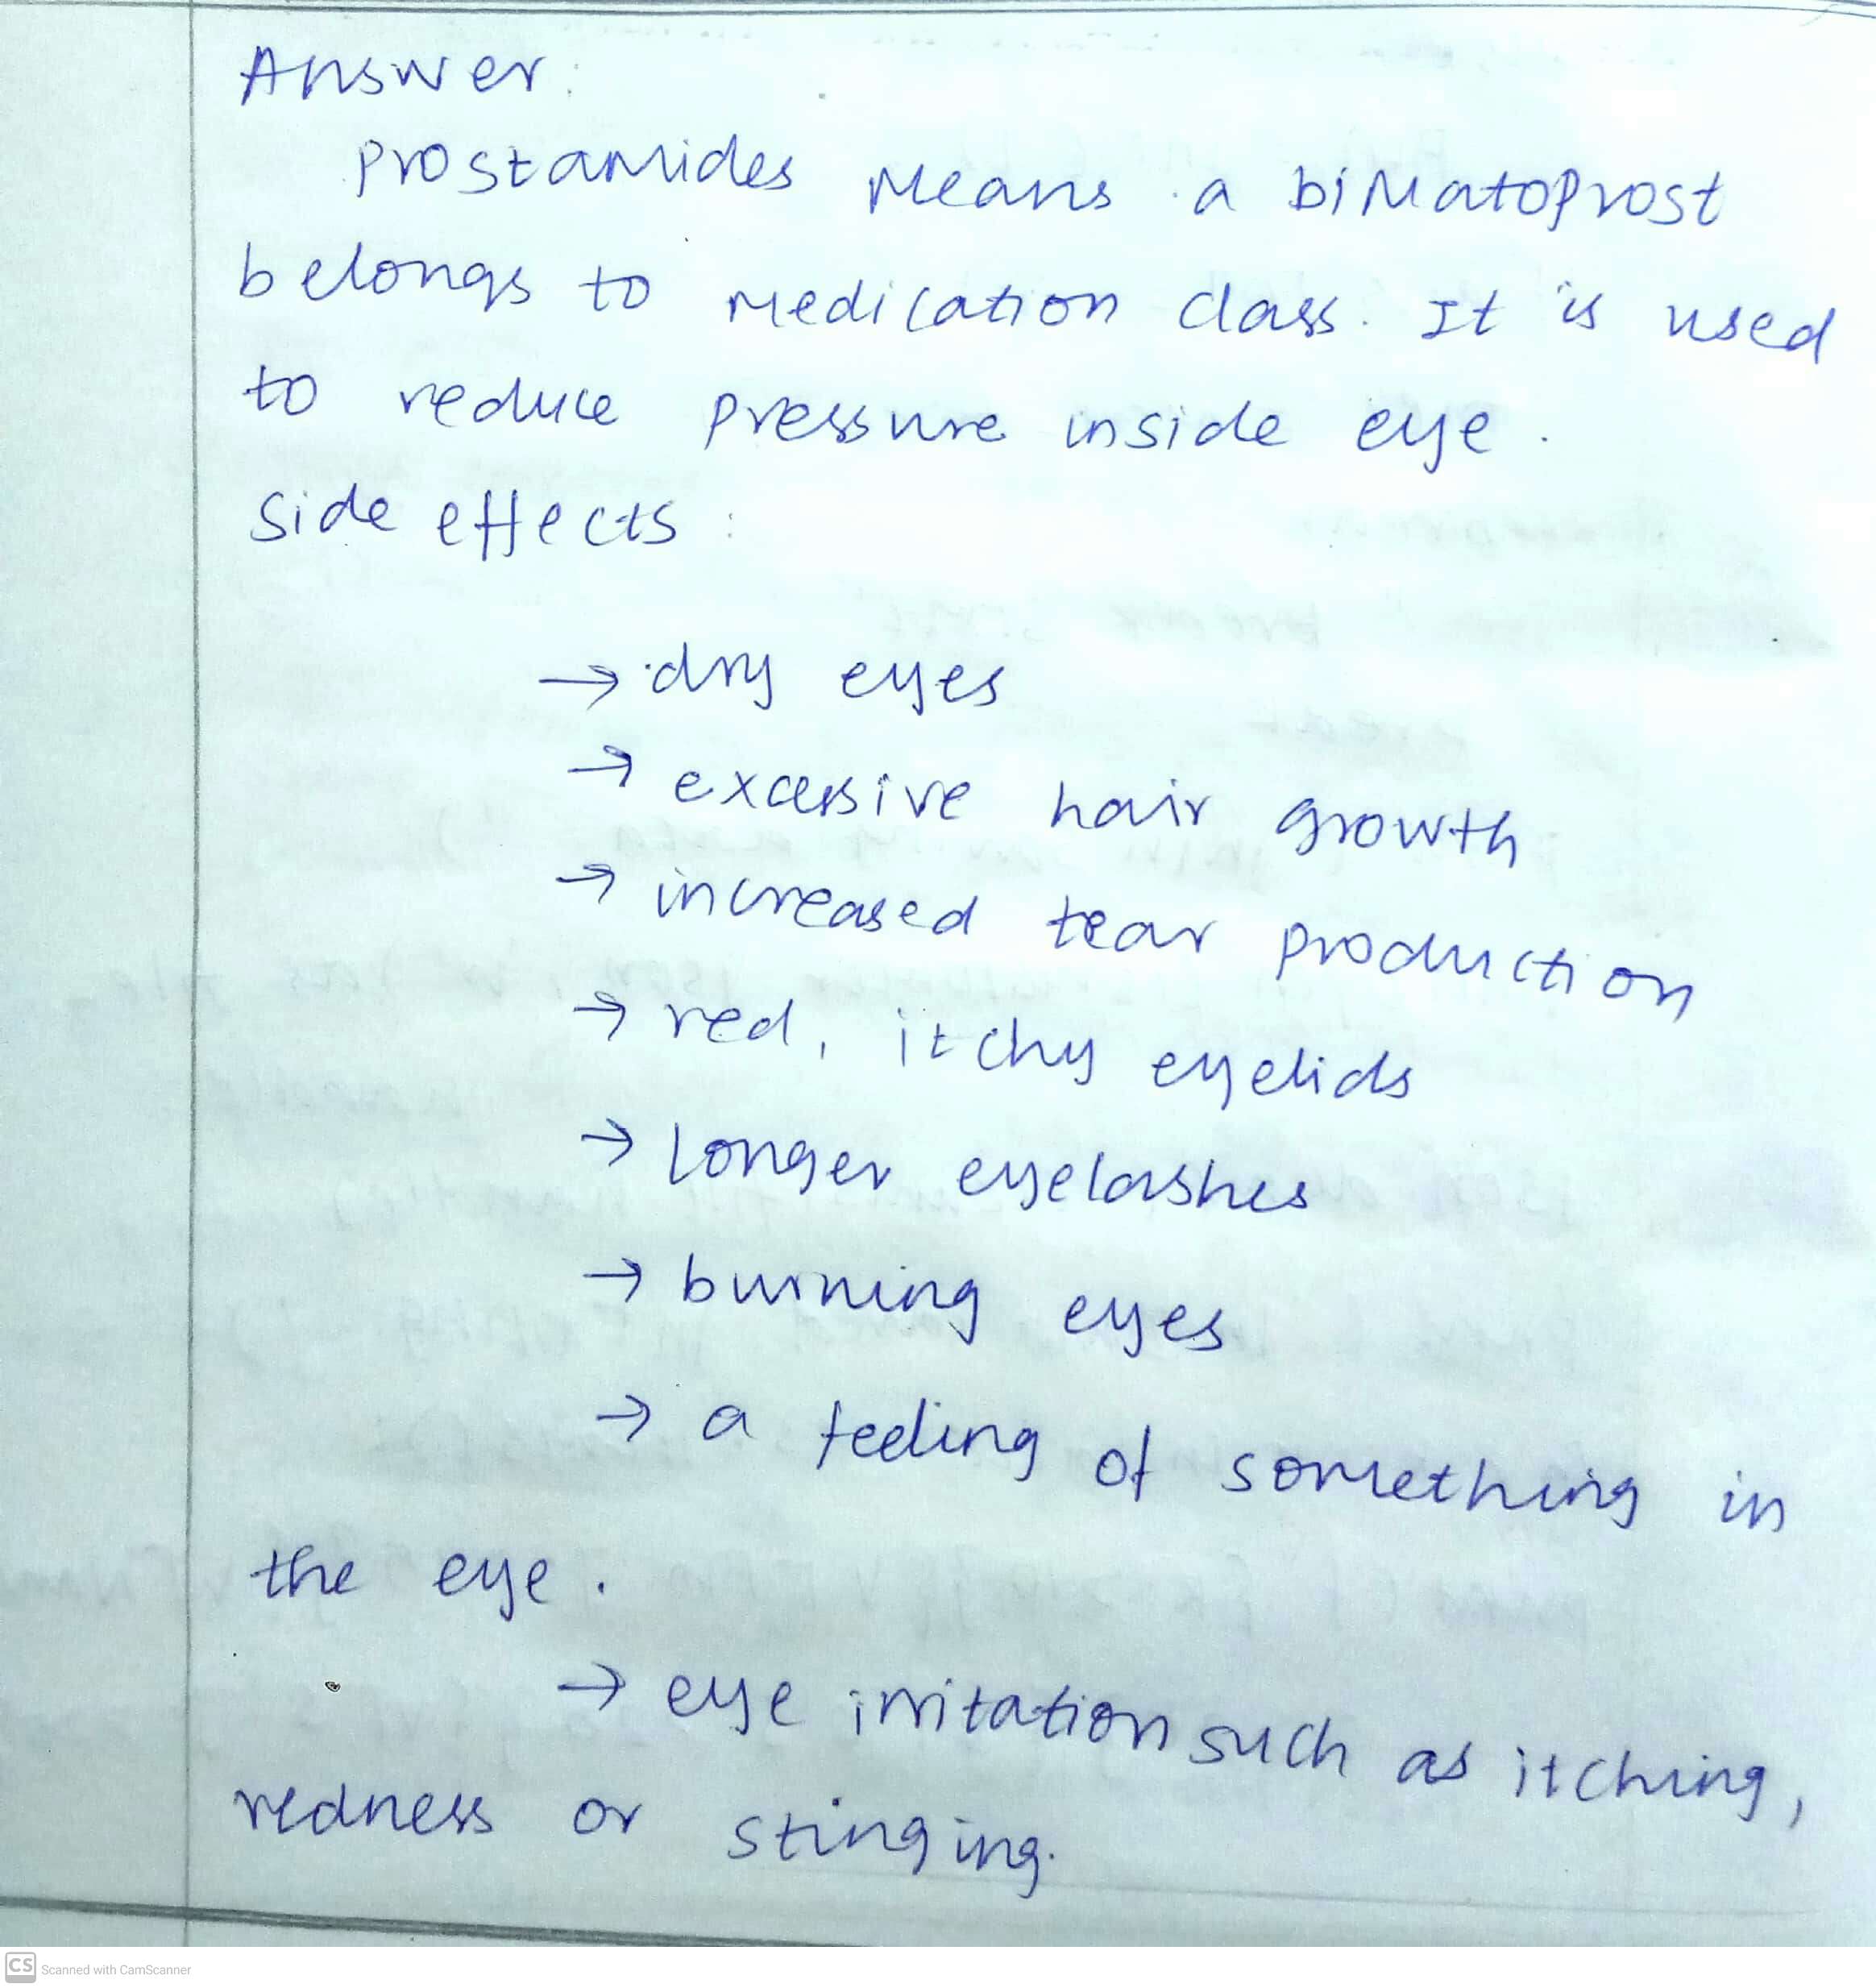 Answer:
Prostamides means a bimatoprost
belongs to medication class. It is used
to reduce pressure inside eye.
Side effects:
→ dry eyes
→ excessive hair growth
→ increased tear production
→ red, itchy eyelids
→ Longer eyelashes
→ burning eyes
→ a feeling of something in
the eye.
→ eye irritation such as itching,
redness or stinging.
CS Scanned with CamScanner